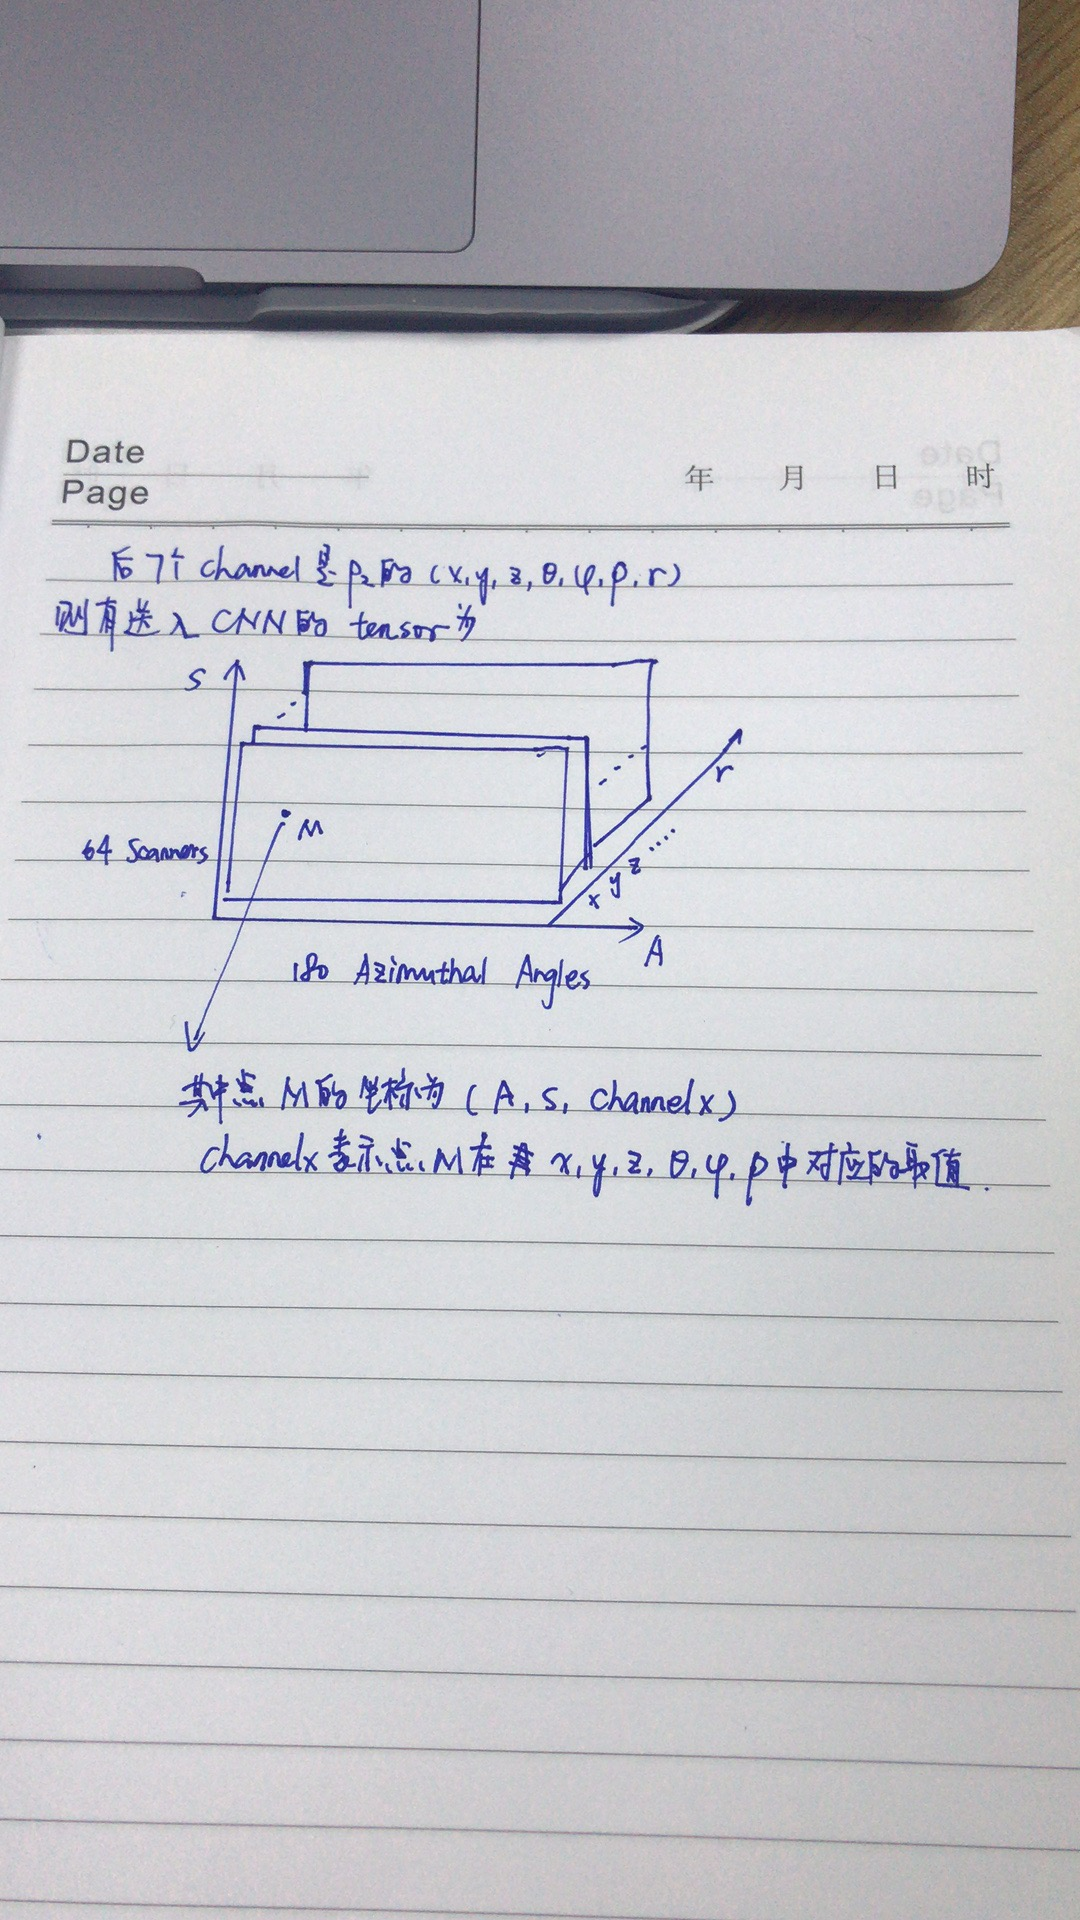 Date
Page
年 月 日 时
后7个 channel 是 p₂的 (x, y, z, θ, φ, ρ, r)
则有送入 CNN 的 tensor 为
S
M
r
64 Scanners
x y z ....
A
180 Azimuthal Angles
其中点 M 的坐标为 (A, S, Channelx)
Channelx 表示点 M 在 x, y, z, θ, φ, ρ 中对应的取值.